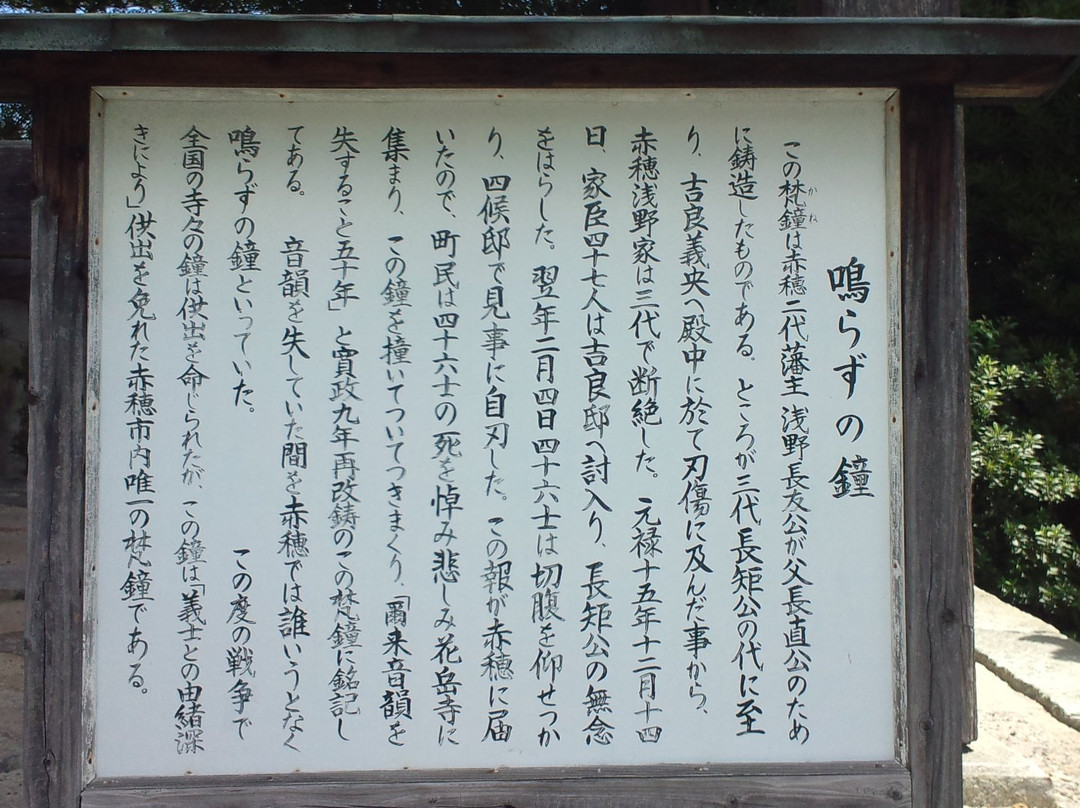 鳴らずの鐘
この梵鐘は赤穂二代藩主 浅野長友公が父長直公のため
かね
に鋳造したものである。ところが三代長矩公の代に至
り、吉良義央へ殿中に於て刃傷に及んだ事から、
赤穂浅野家は三代で断絶した。元禄十五年十二月十四
日、家臣四十七人は吉良邸へ討入り、長矩公の無念
をはらした。翌年二月四日四十六士は切腹を仰せつか
り、四候邸で見事に自刃した。この報が赤穂に届
いたので、町民は四十六士の死を悼み悲しみ花岳寺に
集まり、この鐘を撞いてついてつきまくり、「爾来音韻を
失すること五十年」と寛政九年再改鋳のこの梵鐘に銘記し
てある。 音韻を失していた間を赤穂では誰いうとなく
鳴らずの鐘といっていた。 この度の戦争で
全国の寺々の鐘は供出を命じられたが、この鐘は「義士との由緒深
きにより」供出を免れた赤穂市内唯一の梵鐘である。